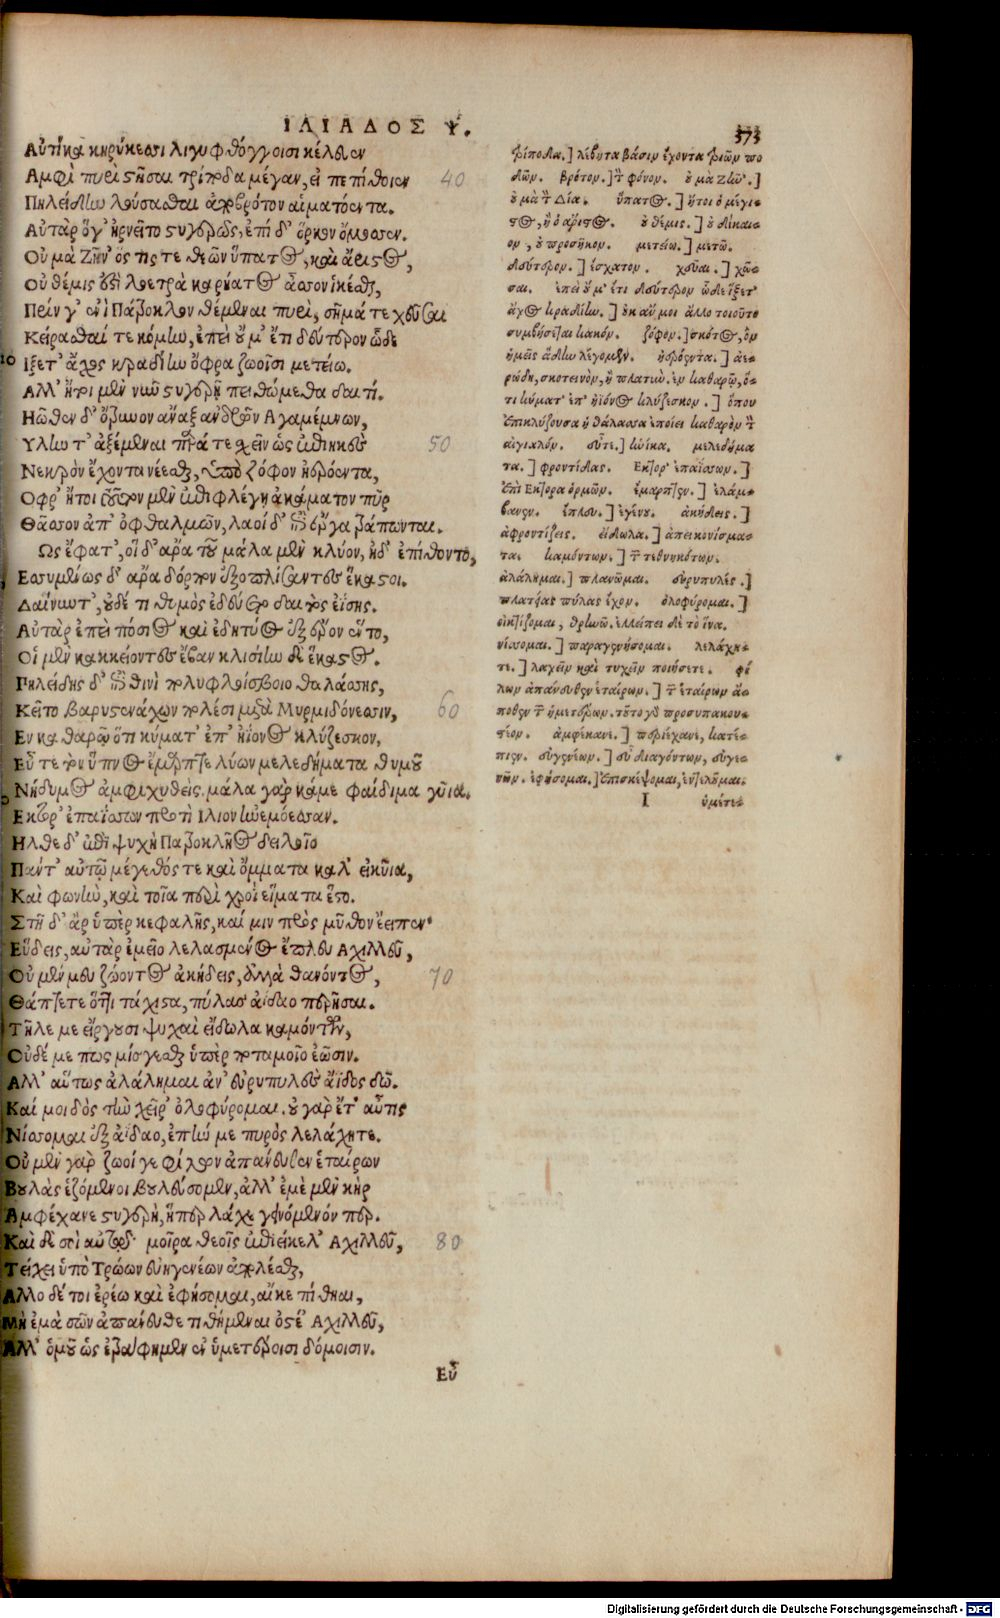 ΙΛΙΑΔΟΣ Ψ.
373
Αὐτίκα κηρύκεσσι λιγυφθόγγοισι κέλευσεν
Αμφὶ πυρὶ στῆσαι τρίποδα μέγαν, εἰ πεπίθοιεν
40
Πηλείδην λούσασθαι ἀπὸ βρότον αἱματόεντα.
Αὐτὰρ ὅγ' ἠρνεῖτο στυγερῶς, ἐπὶ δ' ὅρκον ὄμοσσεν.
Οὐ μὰ Ζῆν' ὅς τις τε θεῶν ὕπατος, καὶ ἄριστος,
Οὐ θέμις ἐστὶ λοετρὰ καρήατος ἆσσον ἱκέσθαι,
Πρίν γ' ἐνὶ Πάτροκλον θέμεναι πυρὶ, σῆμά τε χεῦσαι
Κείρασθαί τε κόμην, ἐπεὶ οὔ μ' ἔτι δεύτερον ὧδε
10
Ιξετ' ἄχος κραδίην ὄφρα ζωοῖσι μετείω.
Αλλ' ἤτοι μὲν νῦν στυγερῇ πειθώμεθα δαιτί.
Ηῶθεν δ' ὄτρυνον ἄναξ ἀνδρῶν Αγαμέμνων,
Υλην τ' ἀξέμεναι παρά τε χεῖν ὡς ἐπιεικὲς
50
Νεκρὸν ἔχοντα νέεσθαι, ὑπὸ ζόφον ἠερόεντα,
Οφρ' ἤτοι τοῦτον μὲν ἐπιφλέγῃ ἀκάματον πῦρ
Θᾶσσον ἀπ' ὀφθαλμῶν, λαοὶ δ' ἐπὶ ἔργα τράπωνται.
Ως ἔφατ', οἱ δ' ἄρα τοῦ μάλα μὲν κλύον, ἠδ' ἐπίθοντο,
Εσσυμένως δ' ἄρα δόρπον ἐφοπλίσαντες ἕκαστοι.
Δαίνυντ', οὐδέ τι θυμὸς ἐδεύετο δαιτὸς ἐΐσης.
Αὐτὰρ ἐπεὶ πόσιος καὶ ἐδητύος ἐξ ἔρον ἕντο,
Οἱ μὲν κακκείοντες ἔβαν κλισίην δὲ ἕκαστος.
Πηλείδης δ' ἐπὶ θινὶ πολυφλοίσβοιο θαλάσσης,
Κεῖτο βαρυστενάχων πολέσι μετὰ Μυρμιδόνεσσιν,
60
Εν καθαρῷ ὅτι κύματ' ἐπ' ἠϊόνος κλύζεσκον,
Εὖτε τὸν ὕπνος ἔμαρπτε λύων μελεδήματα θυμοῦ
Νήδυμος ἀμφιχυθείς. μάλα γὰρ κάμε φαίδιμα γυῖα.
Εκτορ' ἐπαΐσσων προτὶ Ιλιον ἠνεμόεσσαν.
Ηλθε δ' ἐπὶ ψυχὴ Πατροκλῆος δειλοῖο
Πάντ' αὐτῷ μέγεθός τε καὶ ὄμματα κάλ' εἰκυῖα,
Καὶ φωνὴν, καὶ τοῖα περὶ χροῒ εἵματα ἕστο.
Στῆ δ' ἂρ ὑπὲρ κεφαλῆς, καί μιν πρὸς μῦθον ἔειπεν·
Εὕδεις, αὐτὰρ ἐμεῖο λελασμένος ἔπλευ Αχιλλεῦ,
Οὐ μέν μευ ζώοντος ἀκήδεις, ἀλλὰ θανόντος,
70
Θάπτετε ὅττι τάχιστα, πύλας ἀΐδαο περῆσαι.
Τῆλέ με εἴργουσι ψυχαὶ εἴδωλα καμόντων,
Οὐδέ με πως μίσγεσθαι ὑπὲρ ποταμοῖο ἐῶσιν.
Αλλ' αὔτως ἀλάλημαι ἀν' εὐρυπυλὲς ἄϊδος δῶ.
Καί μοι δὸς τὴν χεῖρ' ὀλοφύρομαι. οὐ γὰρ ἔτ' αὖτις
Νίσσομαι ἐξ ἀΐδαο, ἐπὴν με πυρὸς λελάχητε.
Οὐ μὲν γὰρ ζωοί γε φίλων ἀπάνευθεν ἑταίρων
Βουλὰς ἑζόμενοι βουλεύσομεν, ἀλλ' ἐμὲ μὲν κὴρ
Αμφέχανε στυγερὴ, ἥπερ λάχε γεινόμενόν περ.
Καὶ δὲ σοὶ αὐτῷ μοῖρα θεοῖς ἐπιείκελ' Αχιλλεῦ,
80
Τείχει ὑπὸ Τρώων εὐηγενέων ἀπολέσθαι,
Αλλο δέ τοι ἐρέω καὶ ἐφήσομαι, αἴκε πίθηαι,
Μὴ ἐμὰ σῶν ἀπάνευθε τιθήμεναι ὀστέ' Αχιλλεῦ,
Αλλ' ὁμοῦ ὡς ἐτράφημεν ἐν ὑμετέροισι δόμοισιν.
Εὖ
τρίποδα.] λέβητα βάσιν ἔχοντα τριῶν πο
δῶν. βρότον.] τὸν φόνον. οὐ μὰ Ζῆν'.]
οὐ μὰ τὸν Δία. ὕπατος.] ἤτοι ὁ μέγις
τος, ἢ ὁ ἄριστος. οὐ θέμις.] οὐ δίκαι-
ον, οὐ προσῆκον. μετείω.] μετῶ.
δεύτερον.] ἔσχατον. χεῦαι.] χῶ-
σαι. ἐπεὶ οὔ μ' ἔτι δεύτερον ὧδε ἵξετ'
ἄχος κραδίην.] οὐκ ἄν μοι ἄλλο τοιοῦτο
συμβήσεται κακόν. ζόφον.] σκότος, ὃν
ἡμεῖς ἄδην λέγομεν. ἠερόεντα.] ἀε-
ρώδη, σκοτεινὸν, ἢ πλατύν. ἐν καθαρῷ, ὅ-
τι κύματ' ἐπ' ἠϊόνος κλύζεσκον.] ὅπου
ἐπικλύζουσα ἡ θάλασσα ἐποίει καθαρὸν τὸν
αἰγιαλόν. εὖτε.] ἡνίκα. μελεδήμα
τα.] φροντίδας. Εκτορ' ἐπαΐσσων.]
ἐπὶ Εκτορα ὁρμῶν. ἔμαρπτεν.] ἐλάμ-
βανεν. ἔπλευ.] ἐγένου. ἀκήδεις.]
ἀφροντίζεις. εἴδωλα.] ἀπεικονίσμα-
τα. καμόντων.] τῶν τεθνηκότων.
ἀλάλημαι.] πλανῶμαι. εὐρυπυλές.]
πλατείας πύλας ἔχον. ὀλοφύρομαι.]
οἰκτίζομαι, θρηνῶ. ἐλλείπει δὲ τὸ ἵνα.
νίσσομαι.] παραγενήσομαι. λελάχη-
τε.] λαχεῖν καὶ τυχεῖν ποιήσετε. φί
λων ἀπάνευθεν ἑταίρων.] τῶν ἑταίρων ἄ-
ποθεν τῶν ἡμετέρων. τοῦτο γὰρ προσυπακου-
τέον. ἀμφέχανε.] περιέχανε, κατέ-
πιεν. εὐηγενέων.] εὖ διαγόντων, εὐγε-
νῶν. ἐφήσομαι.] ἐπισκήψομαι, ἐντελοῦμαι.
I ὑμετε-
Digitalisierung gefördert durch die Deutsche Forschungsgemeinschaft - DFG